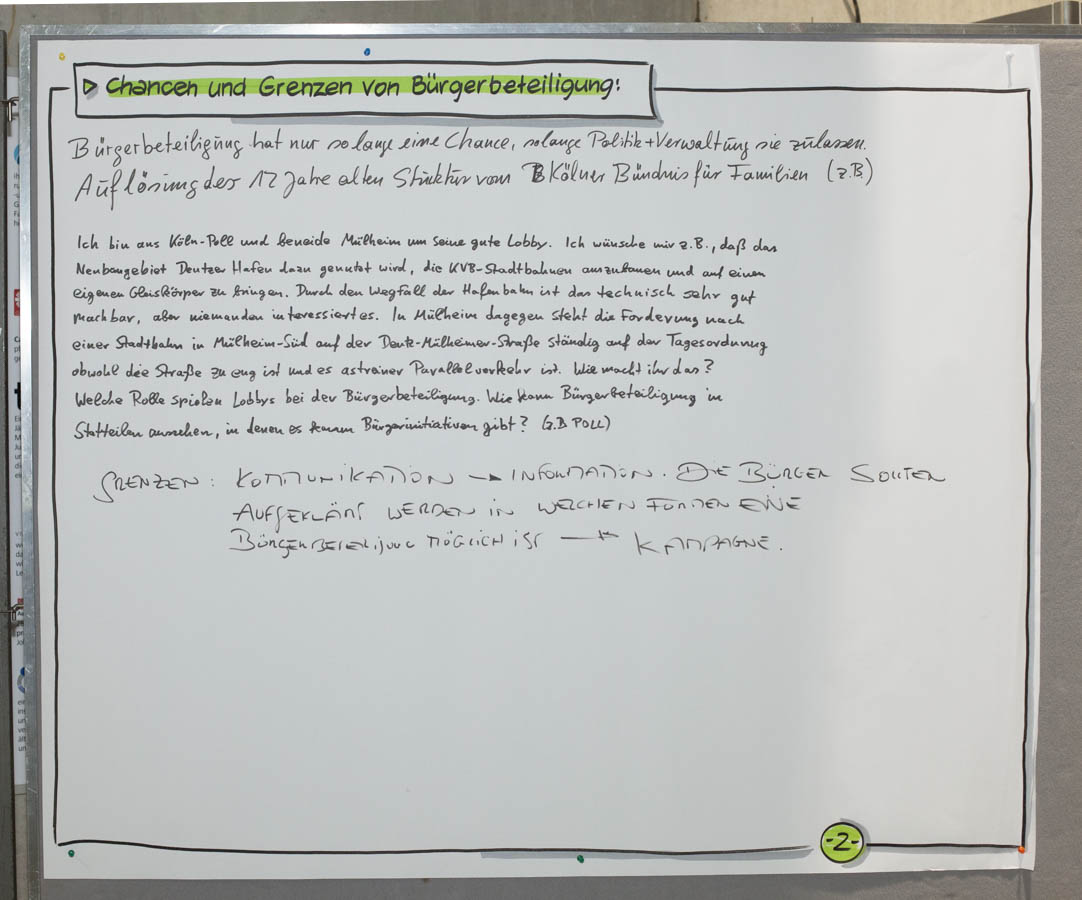 Chancen und Grenzen von Bürgerbeteiligung:
Bürgerbeteiligung hat nur solange eine Chance, solange Politik+Verwaltung sie zulassen.
Auflösung des 12 Jahre alten Struktur vom Kölner Bündnis für Familien (z.B)
Ich bin aus Köln-Poll und beneide Mülheim um seine gute Lobby. Ich wünsche mir z.B., daß das
Neubaugebiet Deutzer Hafen dazu genutzt wird, die KVB-Stadtbahnen auszubauen und auf einen
eigenen Gleiskörper zu bringen. Durch den Wegfall der Hafenbahn ist das technisch sehr gut
machbar, aber niemanden interessiert es. In Mülheim dagegen steht die Forderung nach
einer Stadtbahn in Mülheim-Süd auf der Deutz-Mülheimer-Straße ständig auf der Tagesordnung
obwohl die Straße zu eng ist und es astreiner Parallelverkehr ist. Wie macht ihr das?
Welche Rolle spielen Lobbys bei der Bürgerbeteiligung. Wie kann Bürgerbeteiligung in
Stadtteilen aussehen, in denen es kaum Bürgerinitiativen gibt? (z.B POLL)
GRENZEN: KOMMUNIKATION → INFORMATION. DIE BÜRGER SOLLTEN
AUFGEKLÄRT WERDEN IN WELCHEN FORMEN EINE
BÜRGERBETEILIGUNG MÖGLICH IST → KAMPAGNE.
-2-